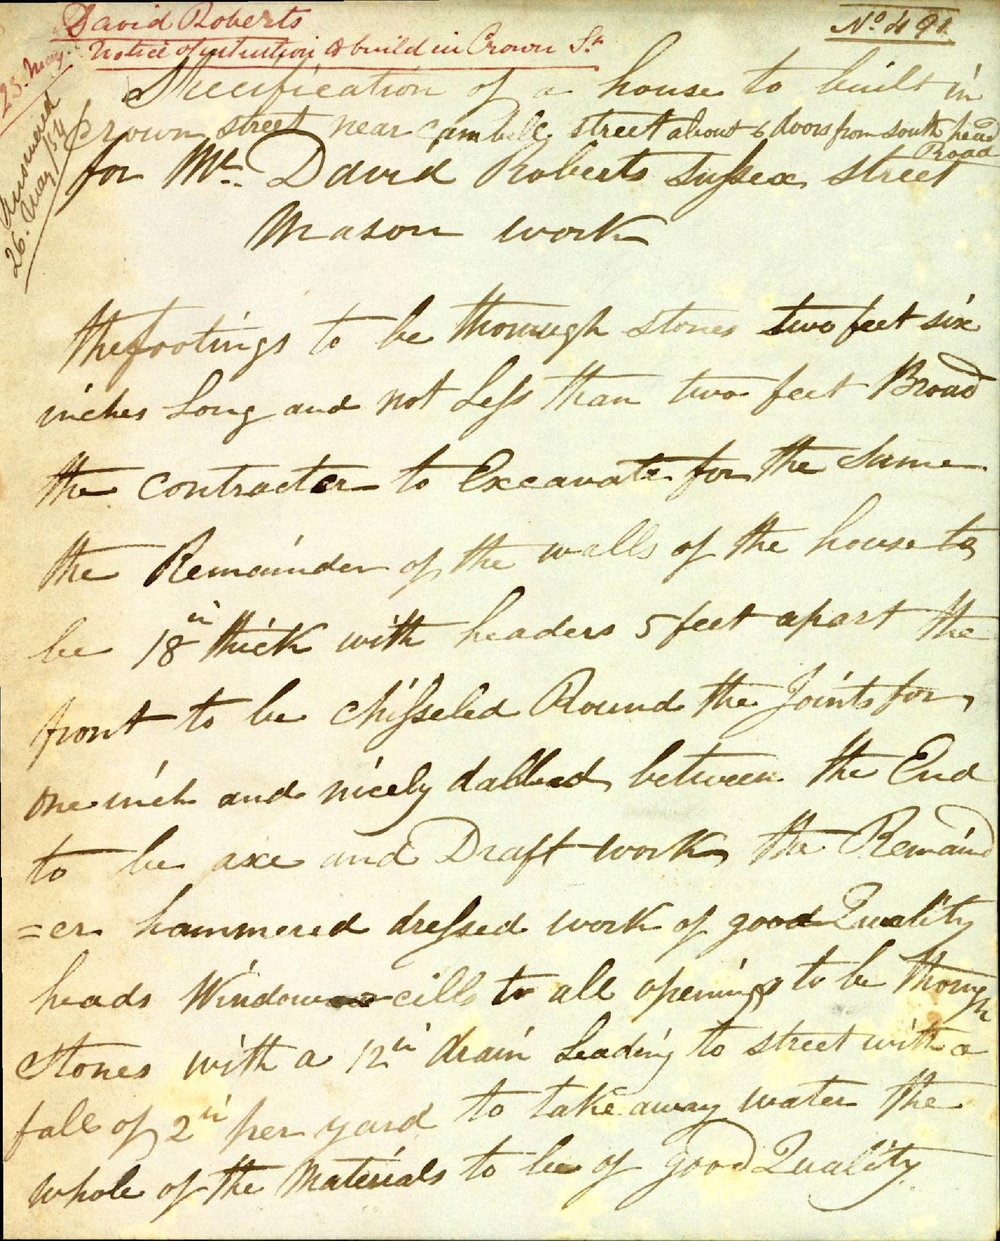 David Roberts
Notice of intention to build in Crown St
No 491
23. May.
Answered
26. May / 54
Specification of a house to built in
crown street near cambell street about 6 doors from south head
Road
for Mr. David Roberts Sussex street
Mason work
the footings to be thorough stones two feet six
inches Long and not Less than two feet Broad
the contractor to Excavate for the Same
the Remainder of the walls of the house to
be 18in thick with headers 5 feet apart the
front to be chisseled Round the Joints for
one inch and nicely dabbed between the End
to be axe and Draft work the Remaind
=er hammered dressed work of good Quality
heads Window cills to all openings to be thorough
Stones with a 12in drain Leading to street with a
fall of 2in per yard to take away water the
whole of the Materials to be of good Quality